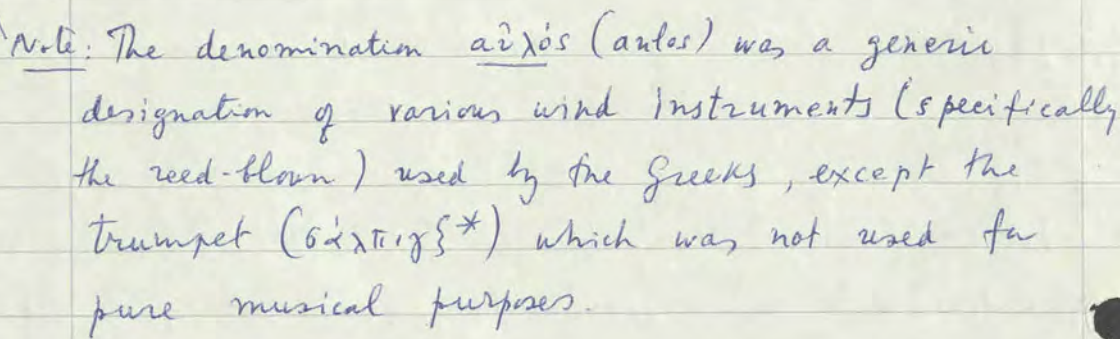 Note: The denomination αὐλός (aulos) was a generic
designation of various wind instruments (specifically
the reed-blown) used by the Greeks, except the
trumpet (σάλπιγξ*) which was not used for
pure musical purposes.